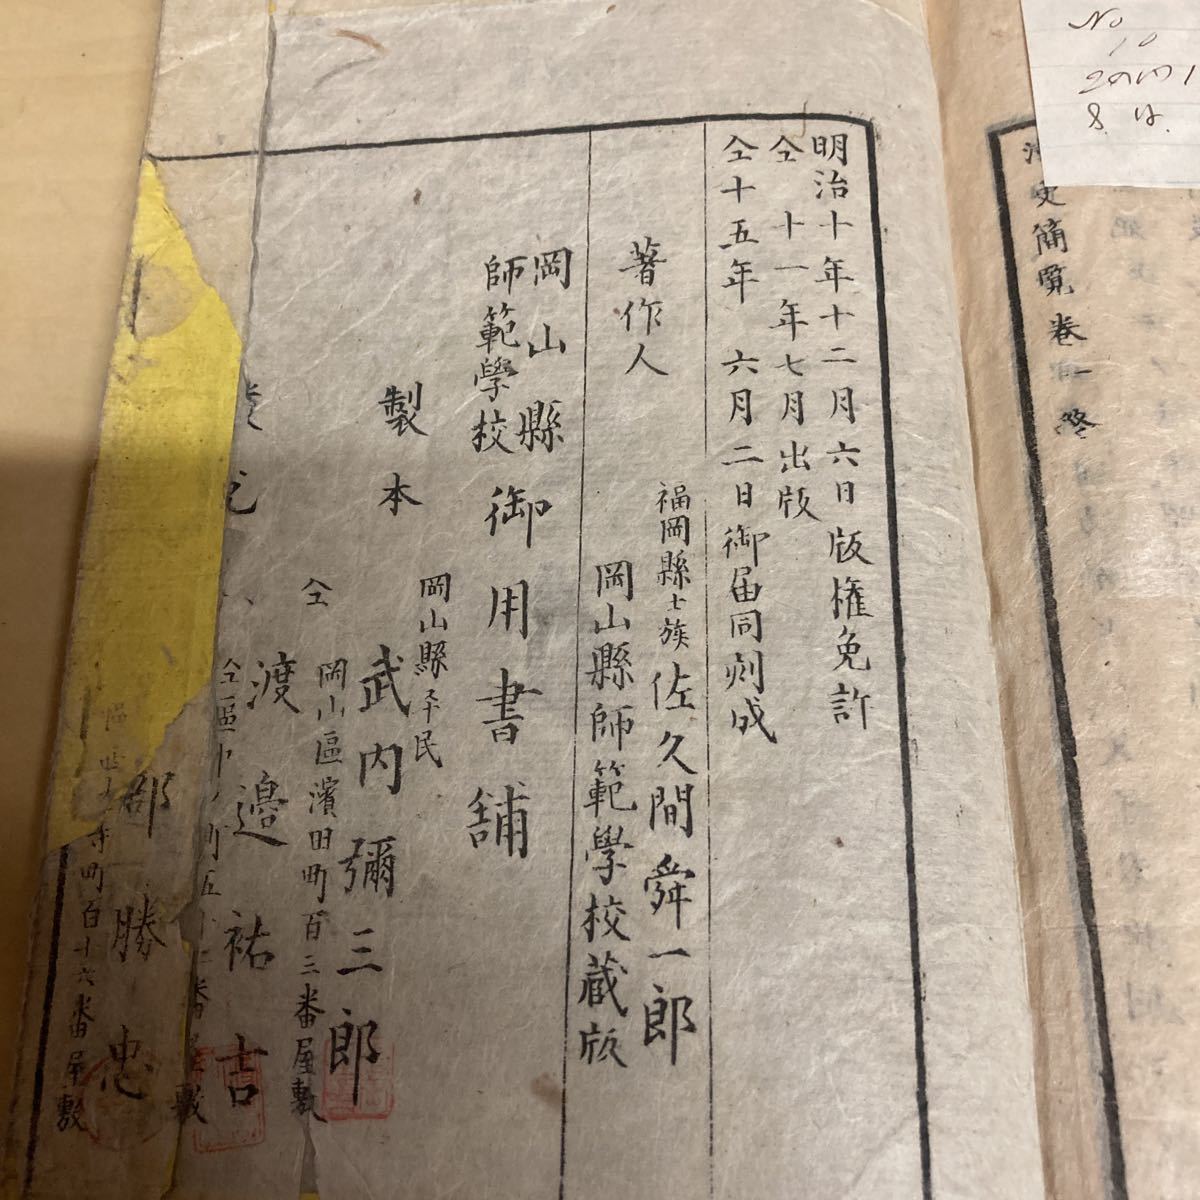 No
10
史簡覧巻一終
明治十年十二月六日版権免許
仝十一年七月出版
仝十五年六月二日御届同刻成
著作人
福岡縣士族
佐久間舜一郎
岡山縣師範學校蔵版
岡山縣
師範學校
御用書舗
製本
岡山縣平民
武内彌三郎
仝
岡山區濱田町百三番屋敷
渡邉祐吉
仝區
部勝忠
町百十六番屋敷